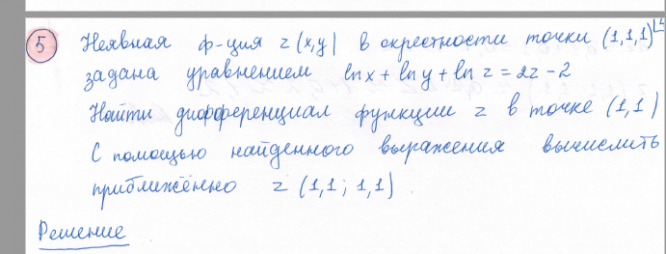 5 Неявная ф-ция z(x,y) в окрестности точки (1,1,1)
задана уравнением ln x + ln y + ln z = 2z - 2
Найти дифференциал функции z в точке (1,1)
С помощью найденного выражения вычислить
приближённо z (1,1; 1,1)
Решение